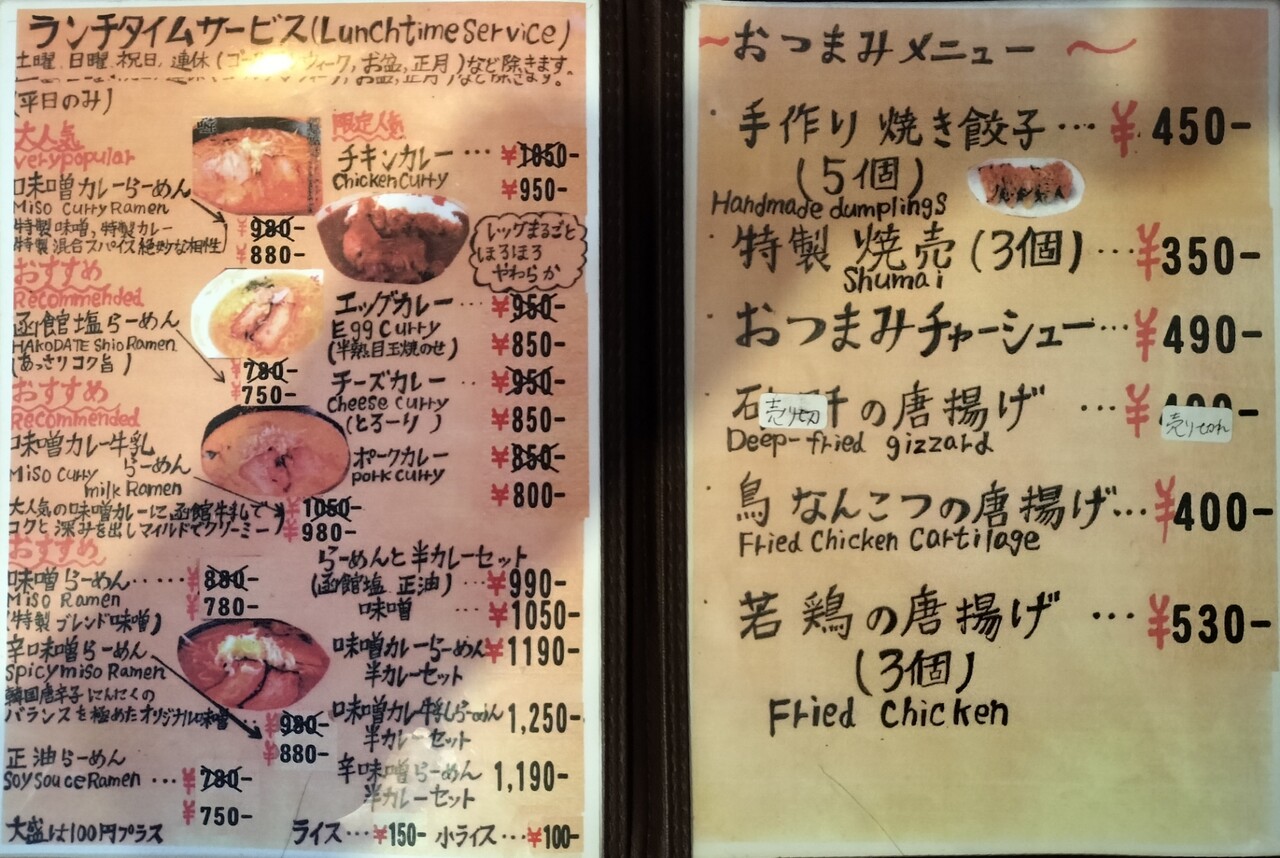 ランチタイムサービス(Lunchtimeservice)
土曜、日曜、祝日、連休(ゴー ウィーク,お盆,正月)など除きます。
(平日のみ)
大人気
verypopular
味噌カレーらーめん
Miso Curry Ramen
特製味噌,特製カレー
特製混合スパイス絶妙な相性
¥980-
¥880-
おすすめ
Recommended
函館塩らーめん
HAKODATE Shio Ramen
(あっさりコク旨)
¥780-
¥750-
おすすめ
Recommended
味噌カレー牛乳
らーめん
Miso Curry
milk Ramen
大人気の味噌カレーに函館牛乳で
コクと深みを出しマイルドでクリーミー
¥1050-
¥980-
おすすめ
味噌らーめん・・・・・・
Miso Ramen
(特製ブレンド味噌)
¥880-
¥780-
辛味噌らーめん
Spicy miso Ramen
韓国唐辛子にんにくの
バランスを極めたオリジナル味噌
¥980-
¥880-
正油らーめん
Soy Souce Ramen ・・・
¥780-
¥750-
大盛は100円プラス
限定人気
チキンカレー・・・ ¥1050-
Chicken Curry ¥950-
レッグまるごと
ほろほろ
やわらか
エッグカレー・・・ ¥950-
Egg Curry
(半熟目玉焼のせ) ¥850-
チーズカレー・・ ¥950-
Cheese Curry
(とろーり) ¥850-
ポークカレー ¥850-
pork Curry ¥800-
らーめんと半カレーセット
(函館塩 正油)・・・¥990-
味噌 ・・・¥1050-
味噌カレーらーめん ¥1190-
半カレーセット
味噌カレー牛乳らーめん 1,250-
半カレーセット
辛味噌らーめん 1,190-
半カレーセット
ライス・・・¥150- 小ライス・・・¥100-
~おつまみメニュー~
・手作り焼き餃子・・・¥450-
(5個)
Handmade dumplings
・特製 焼売(3個)・・・¥350-
Shumai
・おつまみチャーシュー・・・¥490-
・石 肝の唐揚げ ・・・¥
売り切
売り切れ
Deep-fried gizzard
・鳥なんこつの唐揚げ・・・¥400-
Fried Chicken Cartilage
・若鶏の唐揚げ ・・・¥530-
(3個)
Fried Chicken